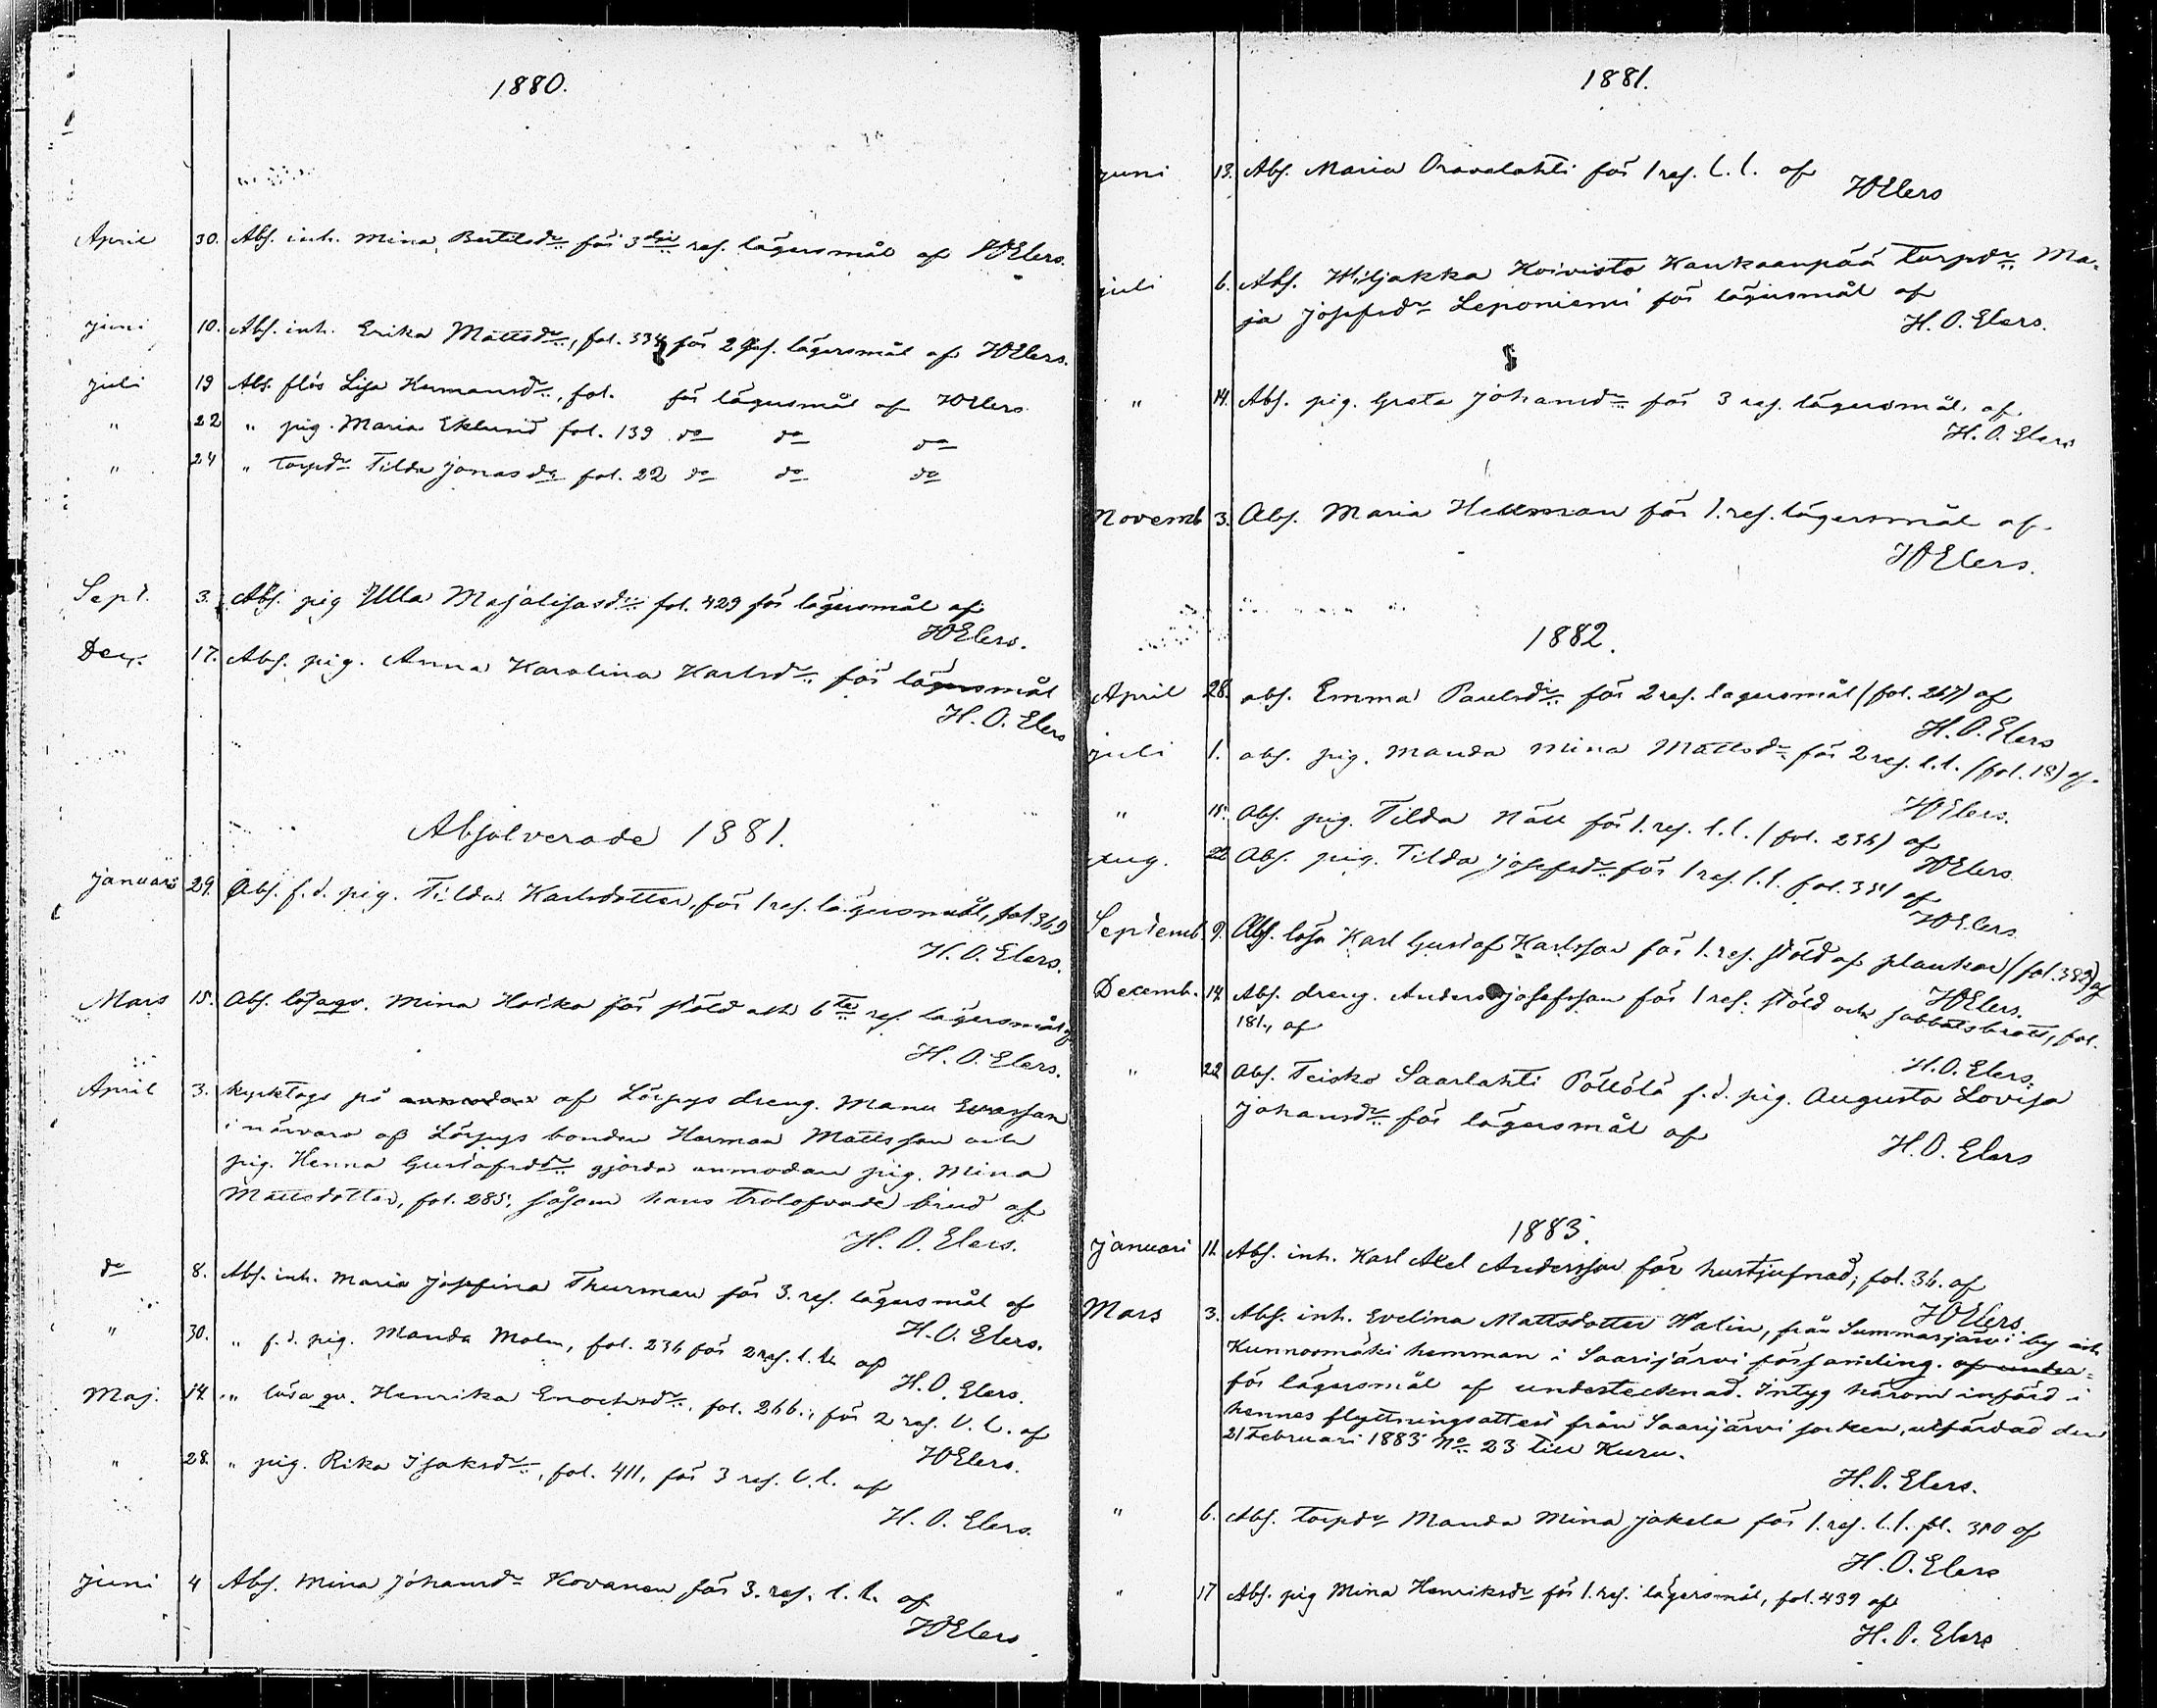 1880.
April 30. Abs. inh. Mina Bertilsdr för 3dje res. lägersmål af HOElers.
juni 10. Abs. inh. Erika Mattsdr, fol. 334, för 2 res. lägersmål af HOElers.
juli 19 Abs. flös Lisa Hermansdr, fol. för lägersmål af HOElers
" 22 " pig. Maria Eklund fol. 139 do do do
" 24 " torpdr Tilda Jonasdr fol. 22 do do do
Sept. 3. Abs. pig Ulla Majalisasdr fol. 429 för lägersmål af
HOElers.
Dec. 17. Abs. pig. Anna Karolina Karlsdr för lägersmål
H. O. Elers
Absolverade 1881.
januari 29. Abs. f.d. pig. Tilda Karlsdotter, för 1 res. lägersmål, fol. 369
H. O. Elers.
Mars 15. Abs. lösa qv. Mina Hoika för stöld och 6te res. lägersmål af
H. O. Elers.
April 3. kyrktogs på anmodan af Lörpys dreng. Manu
i närvaro af Lörpys bonden Herman Mattsson och
pig. Henna Gustafsdr gjorda anmodan pig. Mina
Mattsdotter, fol. 285, såsom hans trolofvade brud af
H. O. Elers.
do 8. Abs. inh. Maria Josefina Thurman för 3. res. lägersmål af
H. O. Elers.
" 30. " f.d. pig. Manda Malm, fol. 236 för 2 res. l.l. af
H. O. Elers.
Maj. 14. " lösa qv. Henrika Enochsdr. fol. 266., för 2 res. l. l. af
HOElers.
" 28. " pig. Rika Isaksdr, fol. 411, för 3 res. l. l. af
H. O. Elers.
juni 4 Abs. Mina Johansdr Kovanen för 3. res. l. l. af
HOElers
1881.
juni 13. Abs. Maria Oravalahti för 1 res. l. l. af
HOElers
juli 6. Abs. Wiljakka Koivisto Kankaanpää torpdr Ma-
ja Josefsdr Leponiemi för lägersmål af
H. O. Elers.
" 14. Abs. pig. Greta Johansdr för 3 res. lägersmål. af
H. O. Elers
Novemb 3. Abs. Maria Hellman för 1. res. lägersmål af
HOElers.
1882.
April 28. abs. Emma Paulsdr för 2 res. lägersmål (fol. 267) af
H. O. Elers
juli 1. abs. pig. Manda Mina Mattsdr för 2 res. l.l. (fol. 18) af
HOElers.
" 15. Abs. pig. Tilda Nätt för 1. res. l. l. (fol. 236) af
HOElers
Aug. 22 Abs. pig. Tilda Josefsdr för 1 res. l. l. fol. 351 af
HOElers
Septemb. 9. Abs. lösa Karl Gustaf Karlsson för 1. res. stöld af plankor (fol. 382) af
HOElers.
Decemb. 14 Abs. dreng. Anders Josefsson för 1 res. stöld och sabbatsbrott, fol.
181., af
H. O. Elers.
" 22 Abs. Teisko Saarlahti Pöllölä f.d. pig. Augusta Lovisa
Johansdr för lägersmål af
H. O. Elers
1883.
januari 11. Abs. inh. Karl Axel Andersson för hustjufnad, fol. 36. af
HOElers
Mars 3. Abs. inh. Evelina Mattsdotter Halin, från Summasjärvi by och
Kunnoomäki hemman i Saarijärvi församling. af under-
för lägersmål af undertecknad. Intyg härom införd i
hennes flyttningsattest från Saarijärvi socken, utfärdad den
21 Februari 1883 No 23 till Kuru.
H. O. Elers.
" 6. Abs. torpdr Manda Mina Jakela för 1. res. l. l. fol. 310 af
H. O. Elers
" 17 Abs. pig Mina Henriksdr för 1. res. lägersmål, fol. 439 af
H. O. Elers